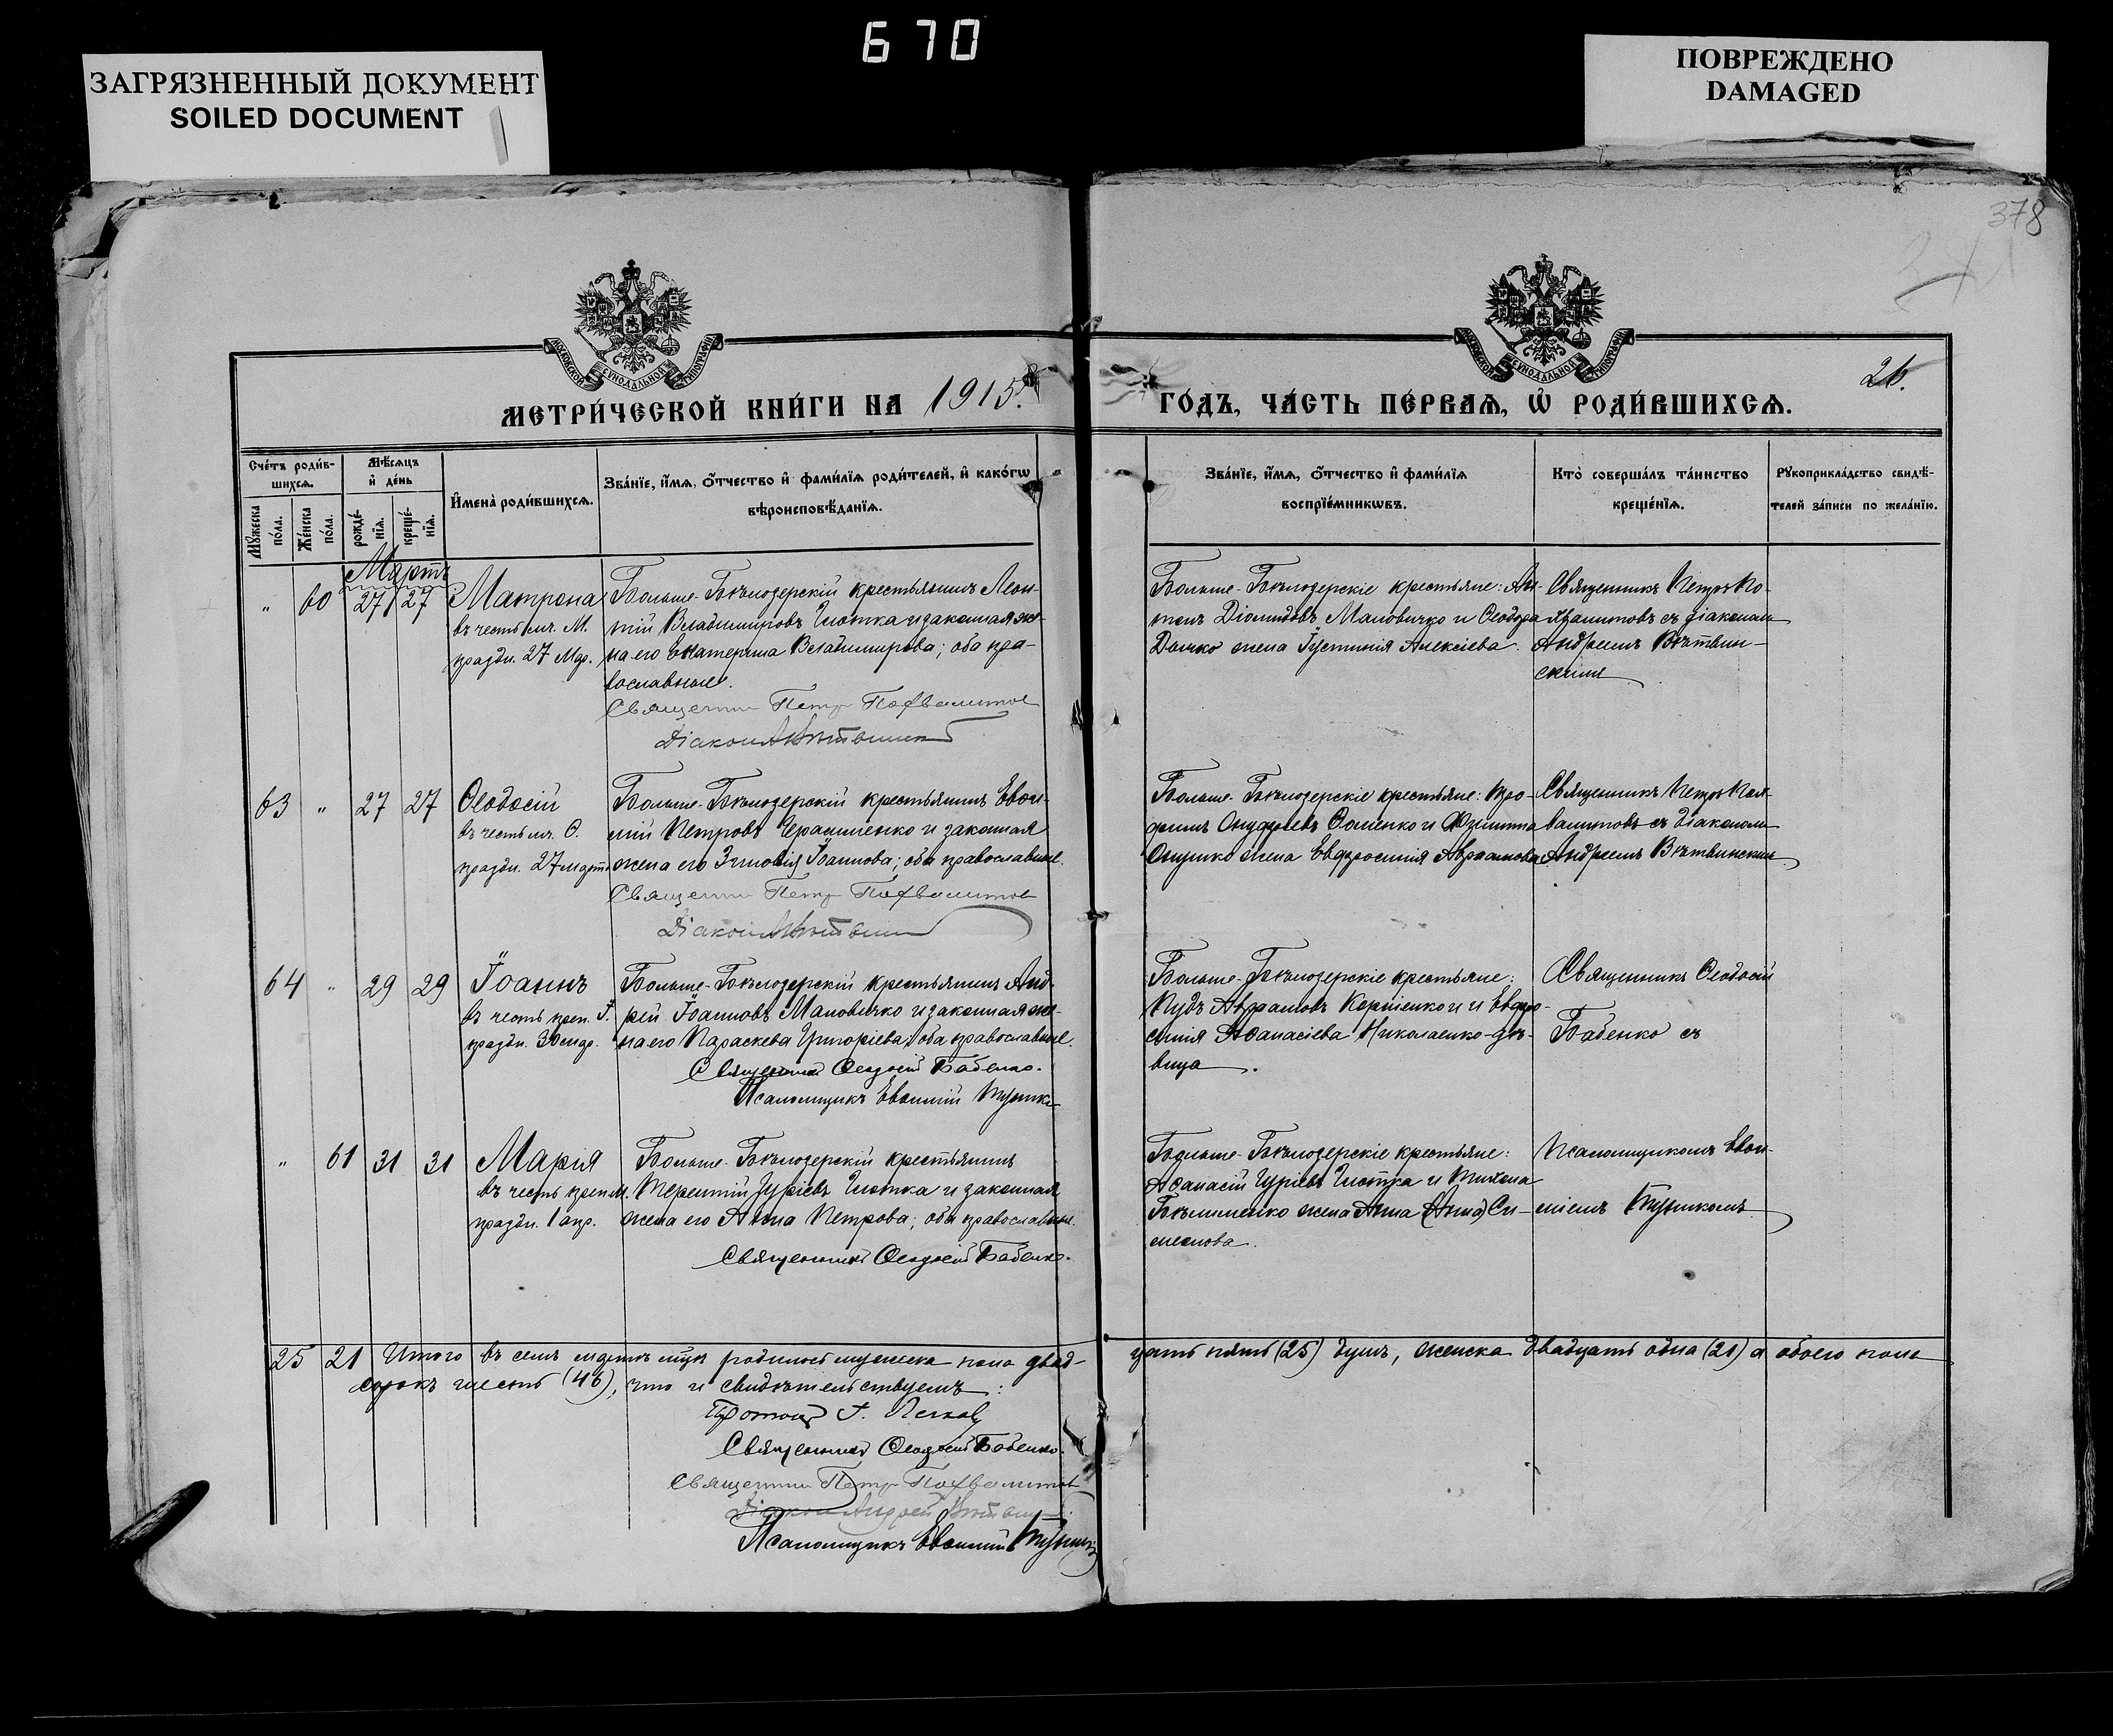 670
ЗАГРЯЗНЕННЫЙ ДОКУМЕНТ
SOILED DOCUMENT
ПОВРЕЖДЕНО
DAMAGED
378
МОСКОВСКОЙ СѴНОДАЛЬНОЙ ТИПОГРАФІИ
МОСКОВСКОЙ СѴНОДАЛЬНОЙ ТИПОГРАФІИ
26.
МЕТРИ́ЧЕСКОЙ КНИ́ГИ НА 1915.
ГО́ДЪ, ЧА́СТЬ ПЕ́РВАѦ, Ѡ҆ РОДИ́ВШИХСѦ.
Сче́тъ роди́в-
шихсѧ.
Мꙋ́жеска по́ла.
Же́нска по́ла.
Мѣ́сѧцъ
и҆ де́нь
рожде́-
нїѧ.
креще́-
нїѧ.
И҆мена̀ роди́вшихсѧ.
Зва́нїе, и҆́мѧ, ѻ҆́тчество и҆ фами́лїѧ роди́телей, и҆ како́гѡ
вѣроисповѣ́данїѧ.
Зва́нїе, и҆́мѧ, ѻ҆́тчество и҆ фами́лїѧ
воспрїе́мникѡвъ.
Кто̀ соверша́лъ та́инство
креще́нїѧ.
Рꙋкоприкла́дство свидѣ́-
телей за́писи по жела́нїю.
Мартъ
" 60 27 27
Матрона
въ честь мч. М.
праздн. 27 Мар.
Больше-Бѣлозерскій крестьянинъ Леон-
тій Владиміровъ Гнотка и законная же-
на его Екатерина Владимірова; оба пра-
вославные.
Священник Петр Похвалитов
Діакон А Вѣтвинск
Больше-Бѣлозерскіе крестьяне: Ан-
тонъ Діомидовъ Маловичко и Ѳеодора
Данко жена Іустинія Алексіева.
Священникъ Петръ По-
хвалитовъ съ діакономъ
Андреемъ Вѣтвин-
скимъ
63 " 27 27
Ѳеодосій
въ честь мч. Ѳ.
праздн. 27 марта
Больше-Бѣлозерскій крестьянинъ Евѳи-
мій Петровъ Герасименко и законная
жена его Зиновія Іоаннова; оба православные.
Священник Петр Похвалитов
Діакон А Вѣтвин
Больше-Бѣлозерскіе крестьяне: Тро-
фимъ Онуфріевъ Фоменко и
Онушко жена Евфросинія Авраамова
Священникъ Петръ Пох-
валитовъ съ діакономъ
Андреемъ Вѣтвинскимъ
64 " 29 29
Іоаннъ
въ честь преп. І.
праздн. 30 мар.
Больше-Бѣлозерскій крестьянинъ Анд-
рей Іоанновъ Маловичко и законная же-
на его Параскева Григоріева; оба православные.
Священник Ѳеодосій Бабенко.
Псаломщикъ Евѳимій
Больше-Бѣлозерскіе крестьяне:
Авраамовъ Корніенко и Евфро-
синія Аѳанасіева Николаенко-дѣ-
вица.
Священникъ Ѳеодосій
Бабенко съ
" 61 31 31
Марія
въ честь преп. М.
праздн. 1 апр.
Больше-Бѣлозерскій крестьянинъ
Терентій Гуріевъ Гнотка и законная
жена его Анна Петрова; оба православные.
Священникъ Ѳеодосій Бабенко.
Больше-Бѣлозерскіе крестьяне:
Аѳанасій Гуріевъ Гнотка и Тихона
жена Анна (Анна) Си-
меонова.
Псаломщикомъ Евѳи-
міемъ
25 21 Итого въ семъ мартѣ м-цѣ родилось мужеска пола двад-
цать пять (25) душъ, женска двадцать одна (21) а обоего пола
сорокъ шесть (46), что и свидѣтельствуемъ:
Священникъ Ѳеодосій Бабенко.
Священник Петр Похвалитов
Діакон Андрей
Псаломщикъ Евѳимій